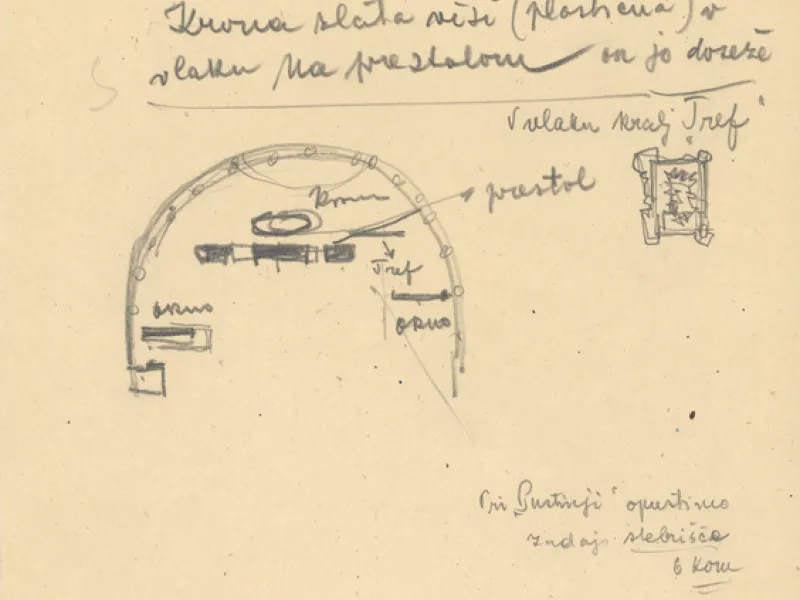 Krona zlata visi (plastična) v
vlaku na prestolom on jo doseže
V vlaku kralj "Tref"
prestol
Tref
okno
okno
Pri "Pustinji" opustimo
zadaj stebrišča
6 kom